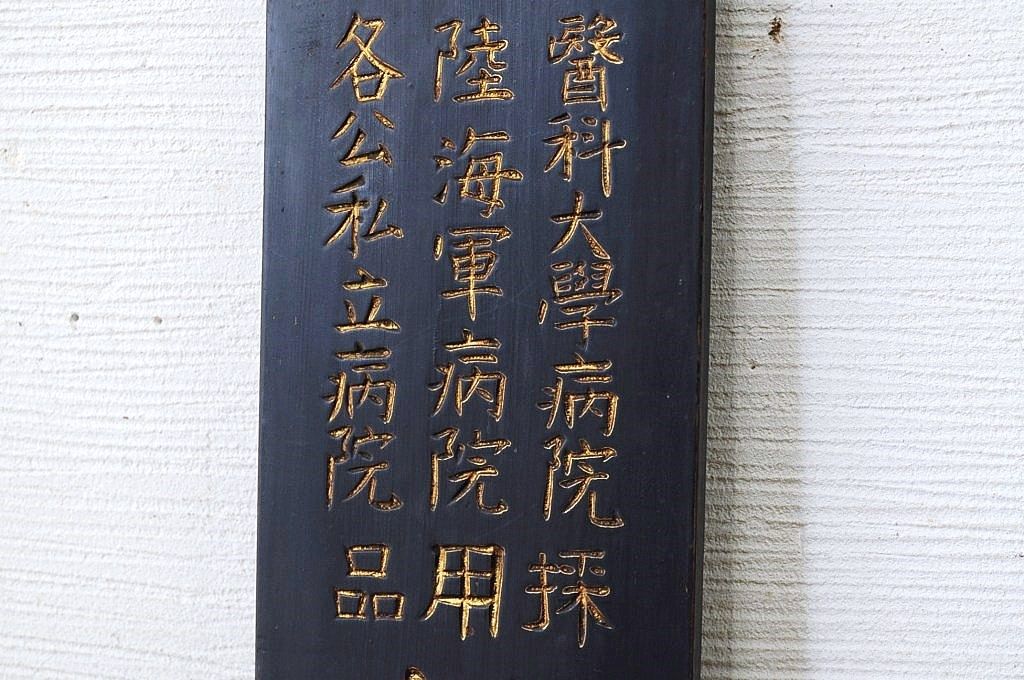 醫科大學病院
陸海軍病院
各公私立病院
採用品